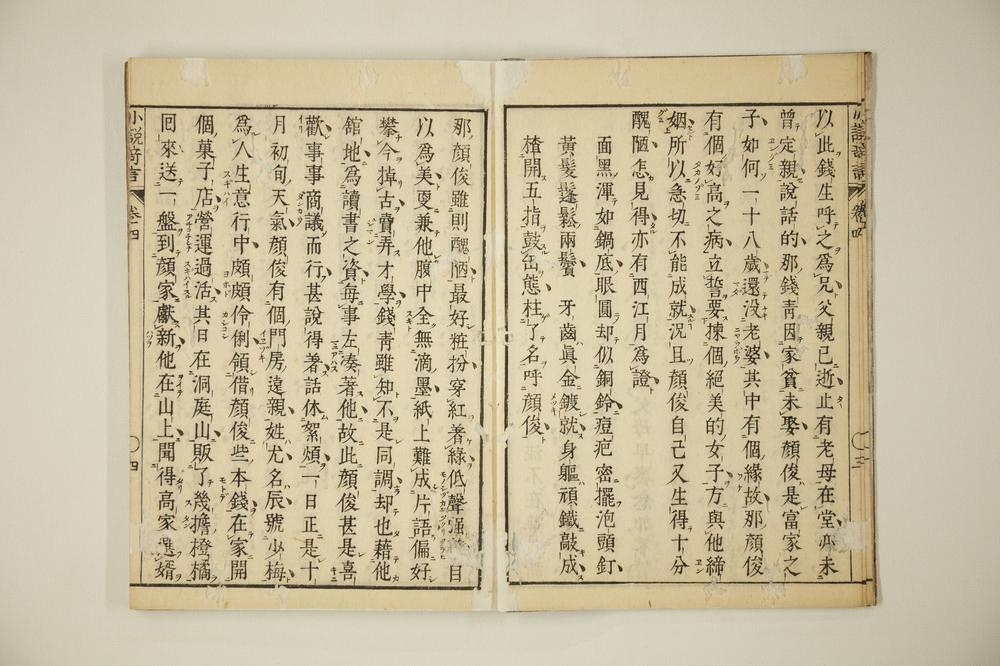 以此錢生呼之爲兄父親已逝止有老母在堂亦未
曾定親說話的那錢青因家貧未娶顏俊是富家之
子如何一十八歲還没老婆其中有個緣故那顏俊
有個好高之病立誓要揀個絕美的女子方與他締
姻所以急切不能成就況且顏俊自己又生得十分
醜陋怎見得亦有西江月爲證
面黑渾如鍋底眼圓却似銅鈴痘疤密擺泡頭釘
黃髮鬔鬆兩鬢 牙齒眞金鍍就身軀頑鐵敲成
楂開五指鼓缶態柱了名呼顏俊
那顏俊雖則醜陋最好粧扮穿紅著綠低聲强 目
以爲美更兼他腹中全無滴墨紙上難成片語偏好
攀今掉古賣弄才學錢青雖知不是同調却也藉他
舘地爲讀書之資每事左湊著他故此顏俊甚是喜
歡事事商議而行甚說得著話休絮煩一日正是十
月初旬天氣顏俊有個門房遠親姓尤名辰號少梅
爲人生意行中頗頗伶俐領借顏俊些本錢在家開
個菓子店營運過活其日在洞庭山販了幾擔橙橘
回來送一盤到顏家獻新他在山上聞得高家選婿
小說奇言 卷四 四